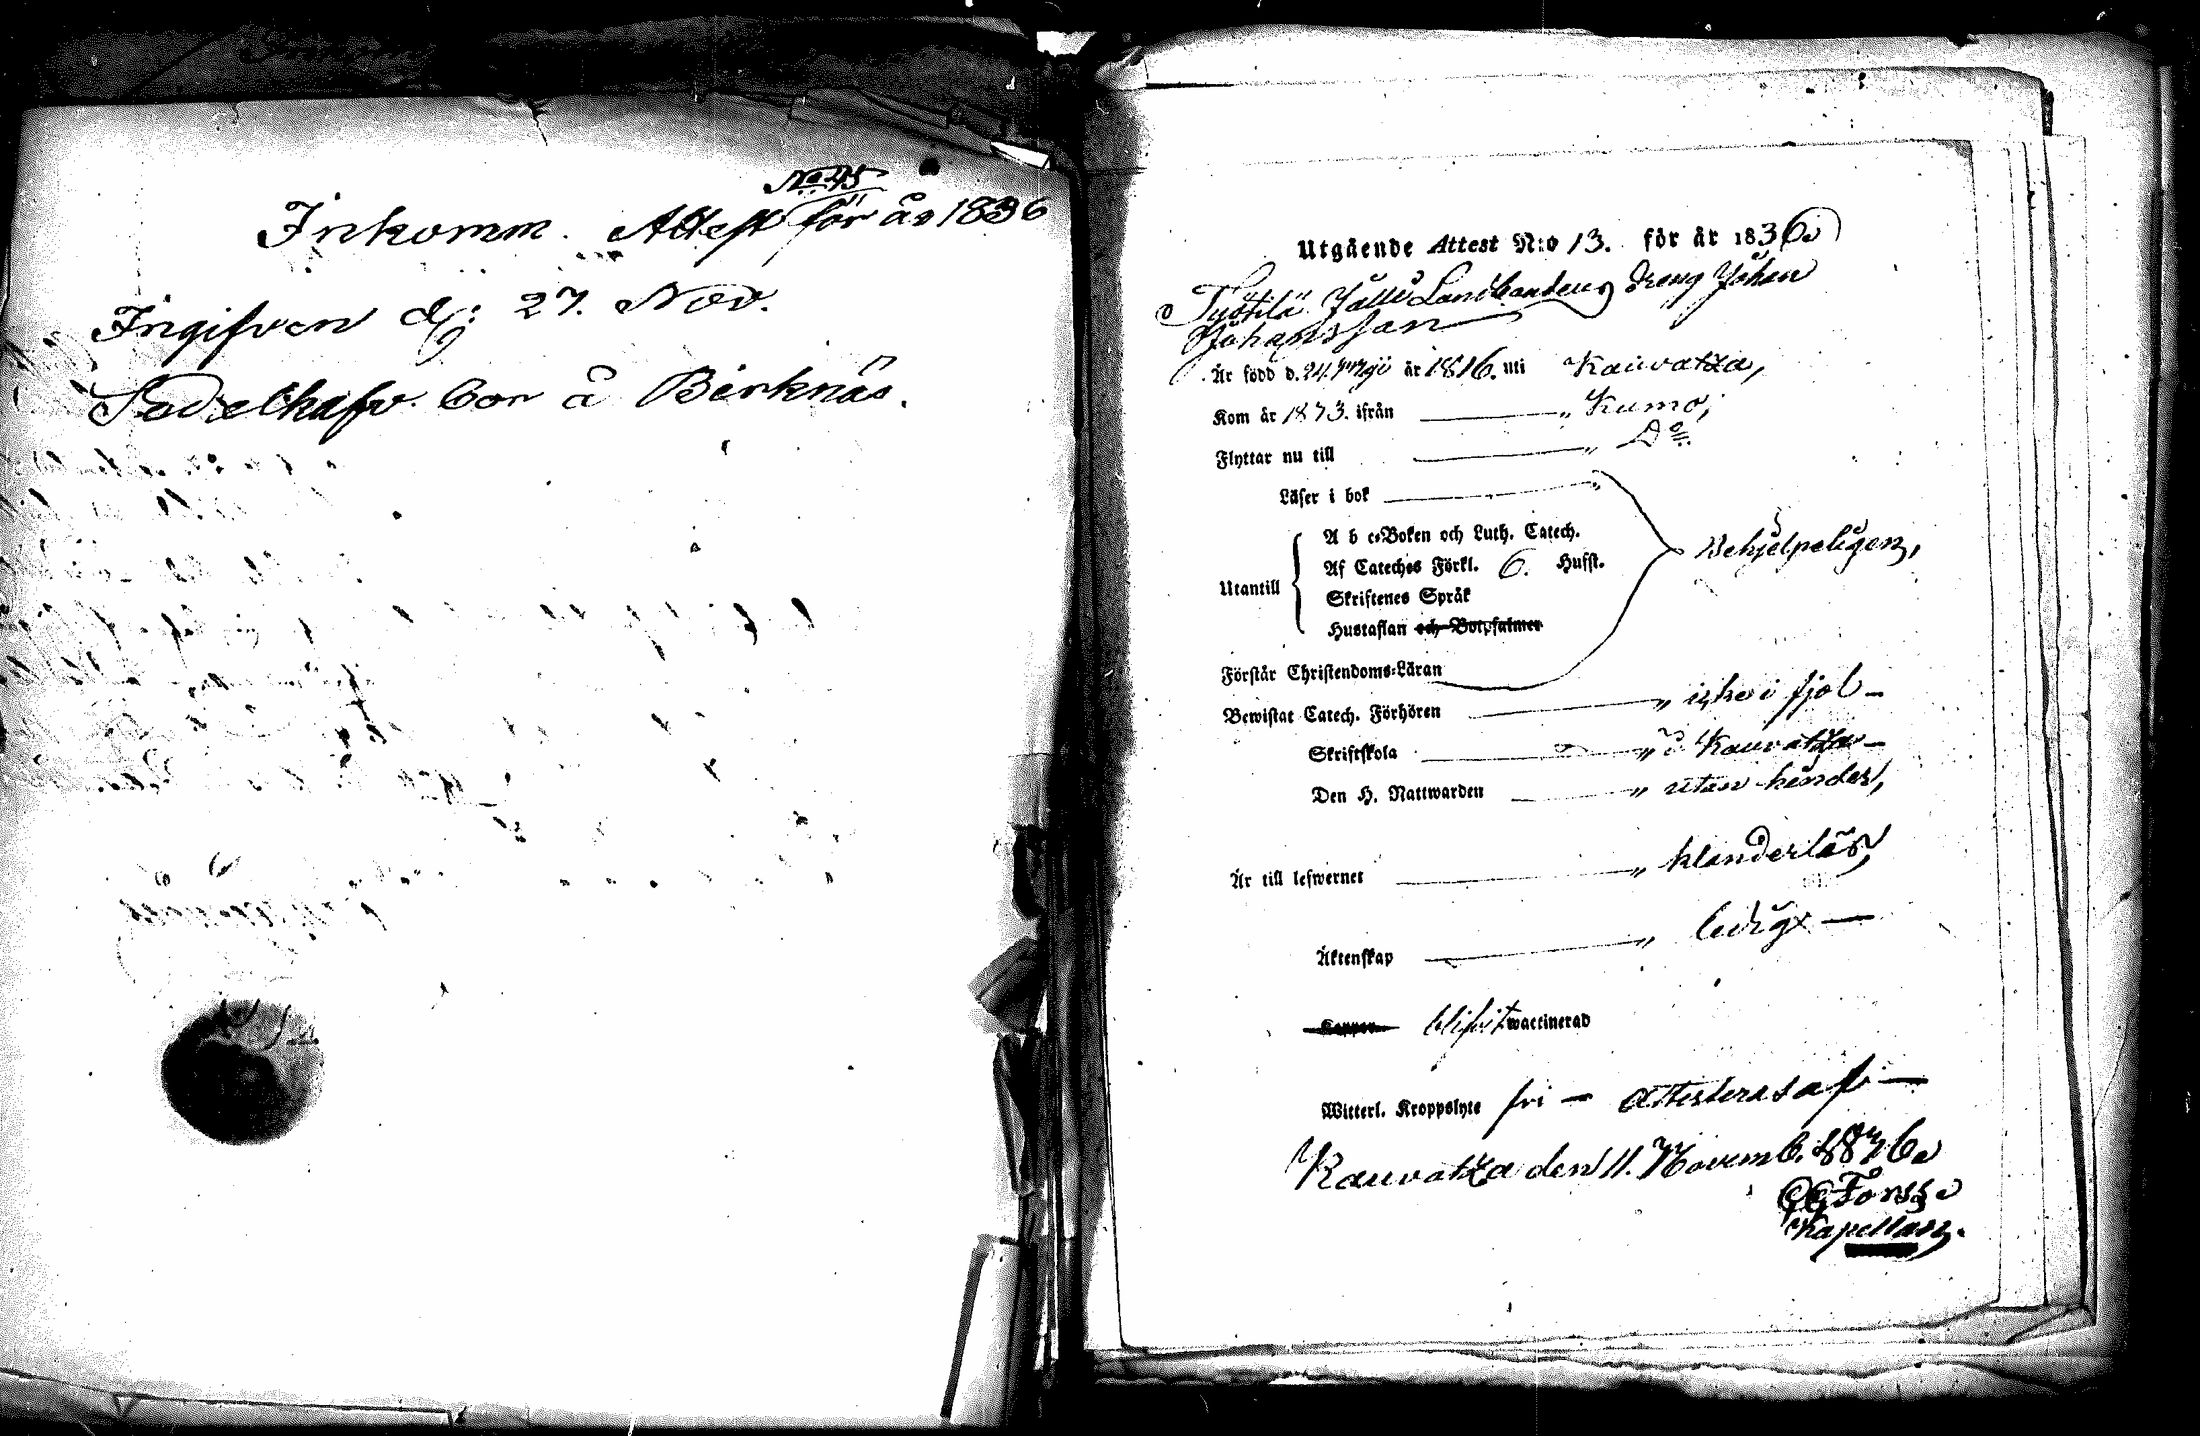 No 45
Inkomm. Attest för år 1836
Ingifven d: 27. Nov.
Sadelhafv. bor å Birknäs.
Utgående Attest N:o 13. för år 1836.
Tystilä Jalli Landbondens dreng Johan
Johansson
Är född d. 24 Maji år 1816. uti Kauvatza,
Kom år 1873. ifrån " Kumo;
Flyttar nu till " Do
Läser i bok "
Utantill
A b c-Boken och Luth. Catech.
Af Cateches Förkl. 6. Hufst.
Skriftenes Språk
Hustaflan och Botpsalmer
Behjelpeligen,
Förstår Christendoms-Läran
Bewistat Catech. Förhören " icke i fjol –
Skriftskola " i Kauvatza –
Den H. Nattwarden " utan hinder,
Är till lefwernet " klanderlös,
Äktenskap " ledig –
Koppor blifvit waccinerad
Witterl. Kroppslyte fri – attesteras af –
Kauvatza den 11. Novemb. 1836.
Forss.
Kapellan.